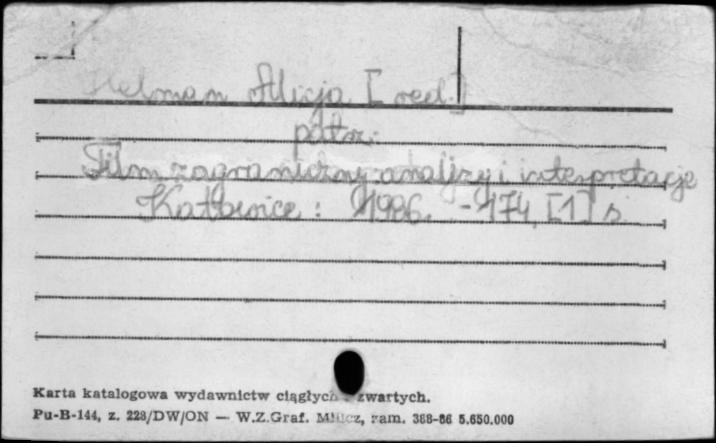 Helman Alicja [red.]
patrz:
Film zagraniczny: analizy i interpretacje
Katowice : 1986. - 174, [1] s
Karta katalogowa wydawnictw ciągłych zwartych.
Pu-B-144, z. 228/DW/ON — W.Z.Graf. Milicz, zam. 388-86 5.650.000